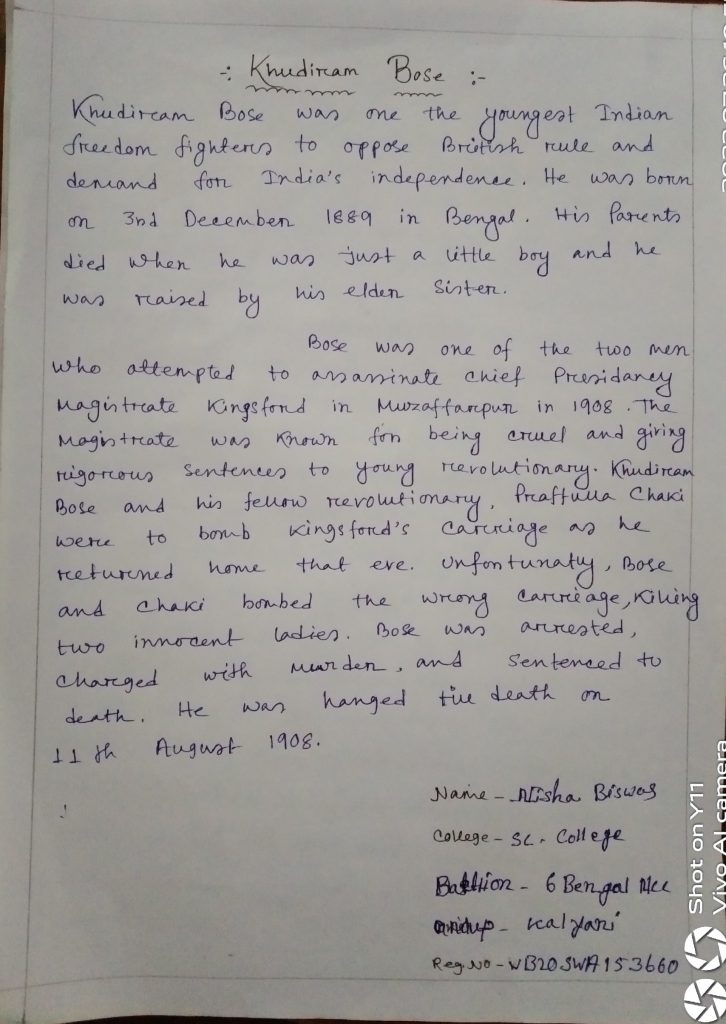 -: Khudiram Bose :-
Khudiram Bose was one the youngest Indian
freedom fighters to oppose British rule and
demand for India's independence. He was born
on 3rd December 1889 in Bengal. His Parents
died when he was just a little boy and he
was raised by his elder Sister.
Bose was one of the two men
who attempted to assassinate chief Presidancy
Magistrate Kingsford in Muzaffarpur in 1908. The
Magistrate was known for being cruel and giving
rigorous sentences to young revolutionary. Khudiram
Bose and his fellow revolutionary, Praffulla Chaki
were to bomb Kingsford's Carriage as he
returned home that eve. Unfortunatly, Bose
and Chaki bombed the wrong carriage, Killing
two innocent ladies. Bose was arrested,
Charged with Murder, and sentenced to
death. He was hanged till death on
11th August 1908.
Name - Nisha Biswas
College - SC. College
- 6 Bengal NCC
- Kalyani
Reg.No - WB20SWA153660
Shot on Y11
Vivo AI camera